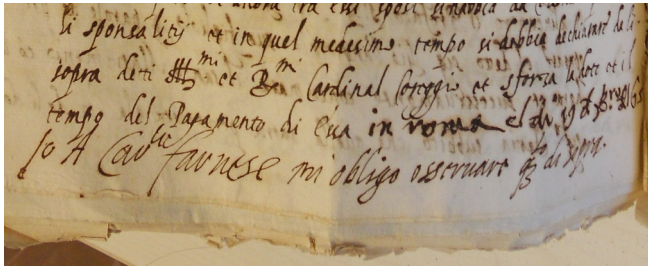 tra essi sposi si habbia da
li sponsalitij et in quel medesimo tempo si debbia dechiarare da li
sopra deti Ill^mi et R^mi Cardinal Coreggio et sforza la dote et il
tempo del Pagamento di essa in roma el di 19 d
Io A Car^le farnese mi obligo osservare q^to di sopra.